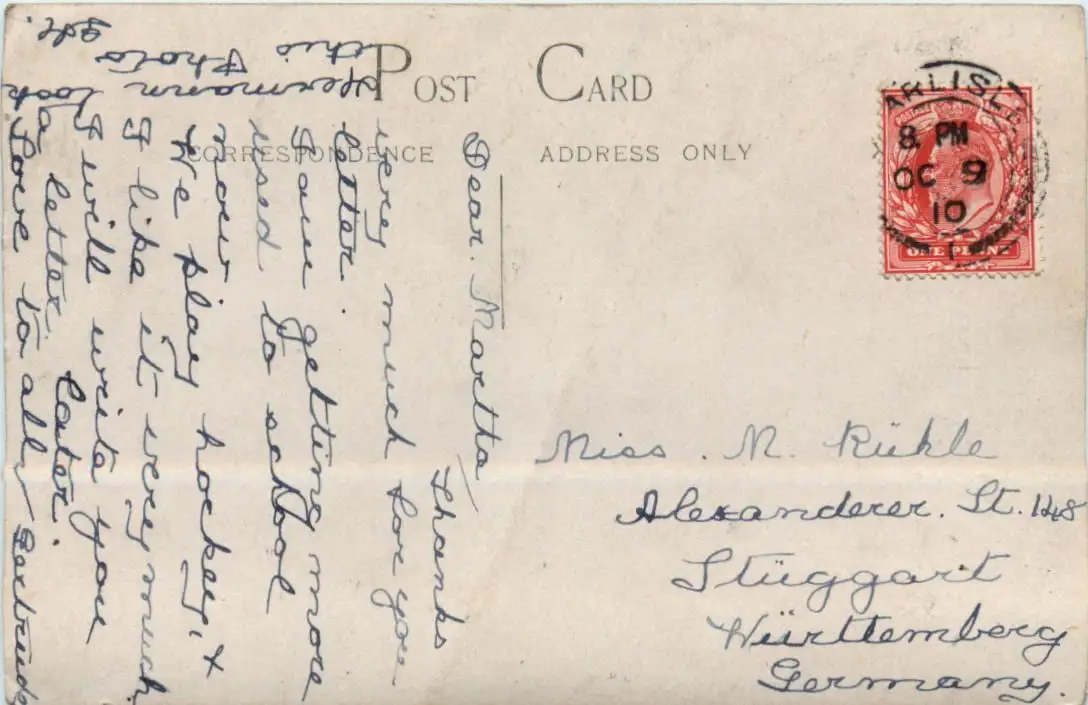 POST CARD
CORRESPONDENCE
ADDRESS ONLY
CARLISLE
8 PM
OC 9
10
1
ONE PENNY
Dear. Martha
Thanks
very much for your
letter.
I am getting more
used to school
now
We play hockey, &
I like it very much
I will write you
a letter later.
Love to all
Gertrude
Hermann took
this Photo
Miss. M. Rükle
Alexanderer. St. 148
Stüggart
Württemberg
Germany.